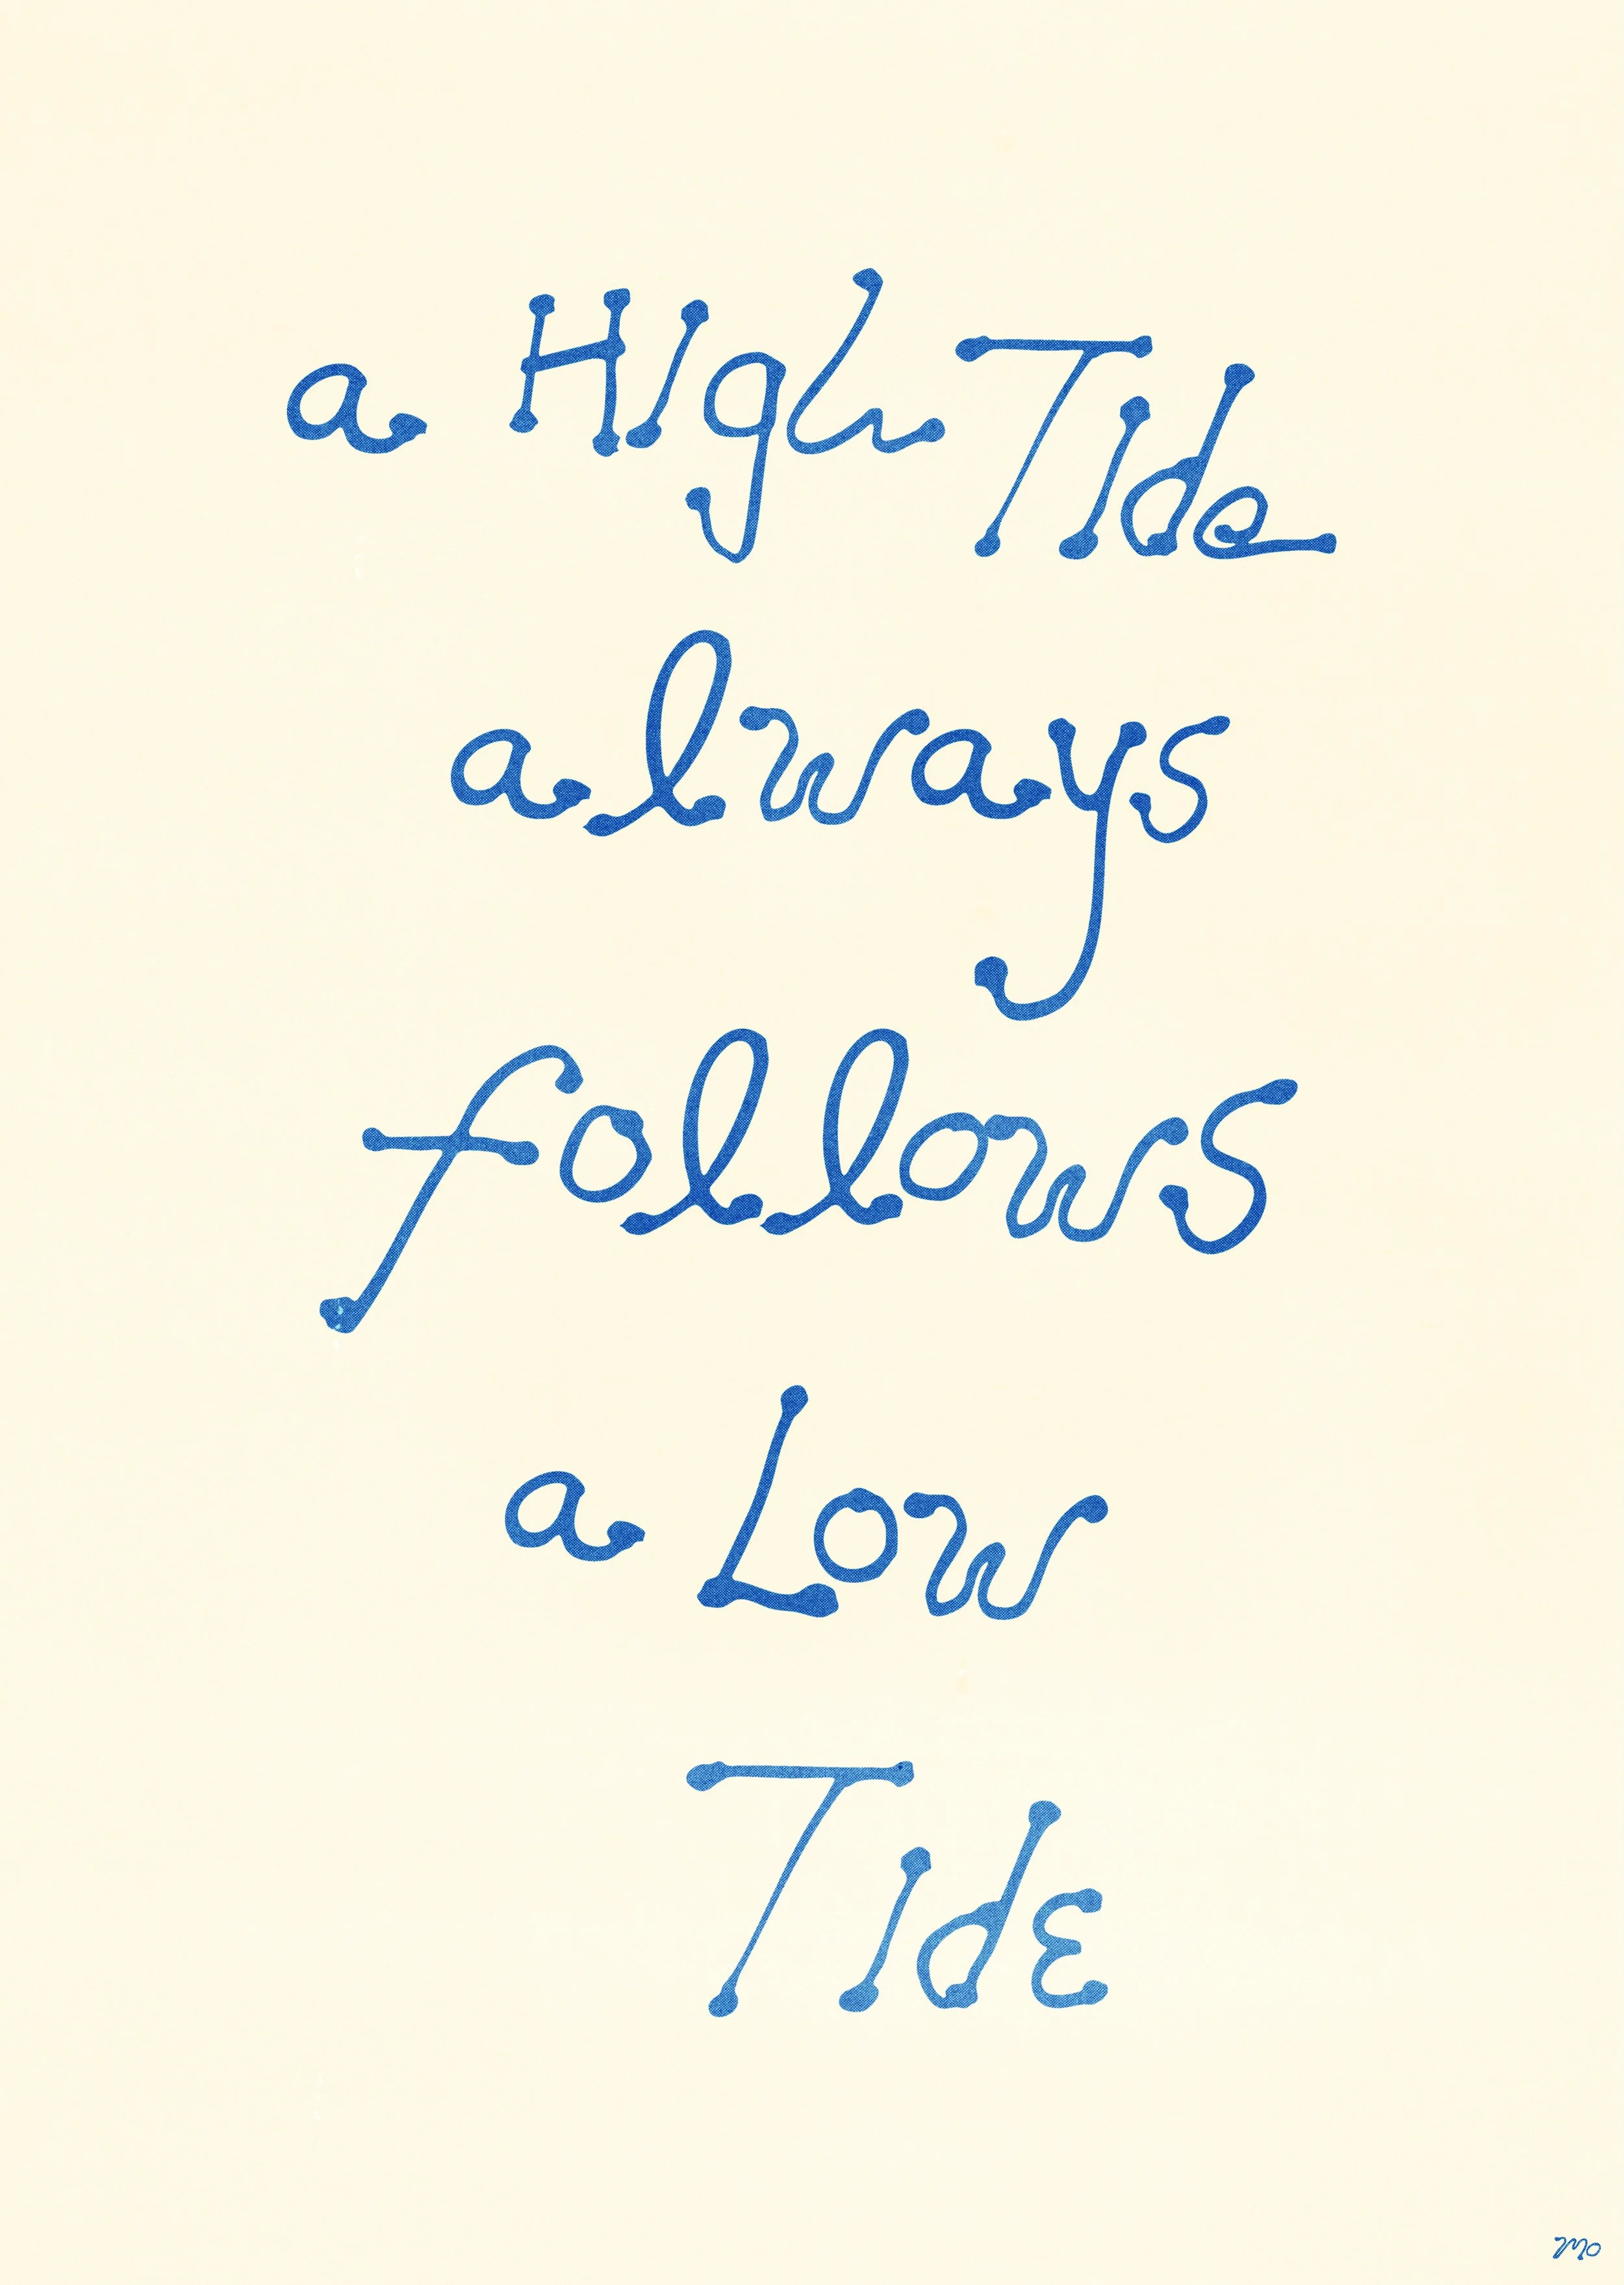 a HIgh TIde
always
follows
a Low
TIdε
Mo